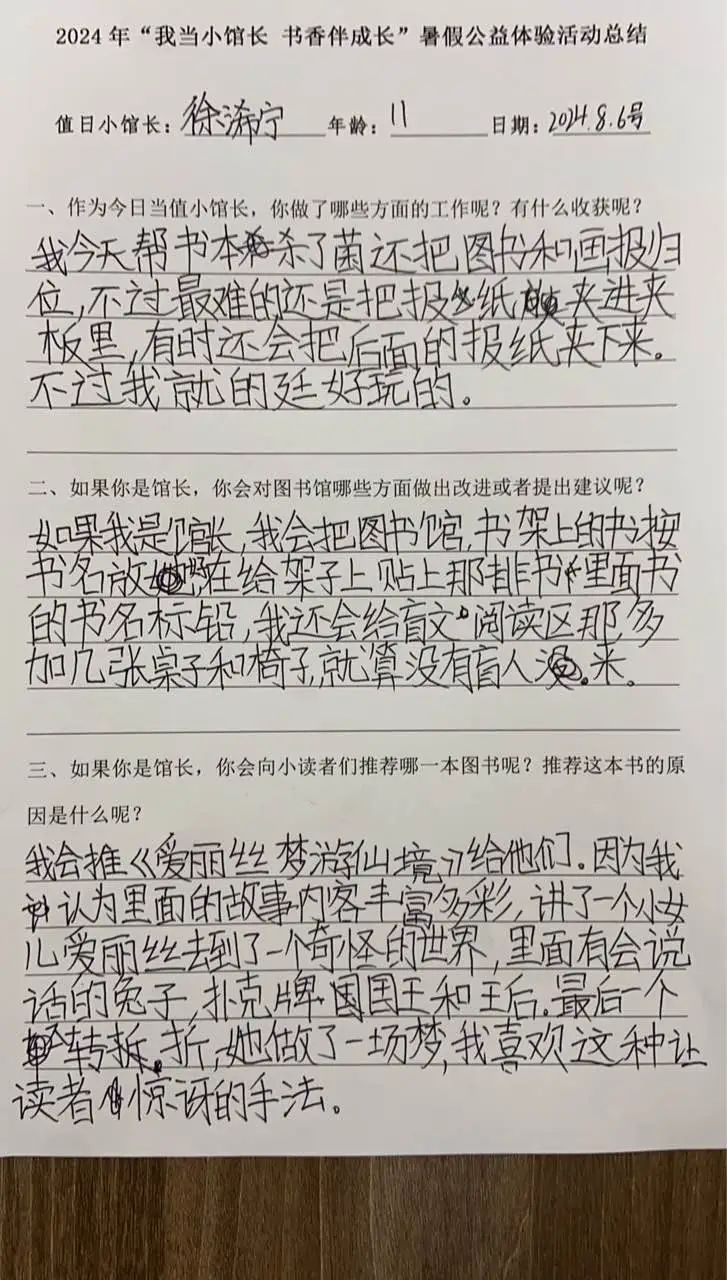 2024年“我当小馆长 书香伴成长”暑假公益体验活动总结
值日小馆长：徐浠宁 年龄：11 日期：2024.8.6号
一、作为今日当值小馆长，你做了哪些方面的工作呢？有什么收获呢？
我今天帮书本杀了菌还把图书和画报归
位，不过最难的还是把报纸夹进夹
板里，有时还会把后面的报纸夹下来。
不过我就的廷好玩的。
二、如果你是馆长，你会对图书馆哪些方面做出改进或者提出建议呢？
如果我是馆长，我会把图书馆，书架上的书按
书名放，在给架子上贴上那排书里面书
的书名标铅，我还会给盲文阅读区那多
加几张桌子和椅子，就算没有盲人来。
三、如果你是馆长，你会向小读者们推荐哪一本图书呢？推荐这本书的原
因是什么呢？
我会推《爱丽丝梦游仙境》给他们。因为我
认为里面的故事内客丰富多彩，讲了一个小女
儿爱丽丝去到了一个奇怪的世界，里面有会说
话的兔子，扑克牌国国王和王后。最后一个
转折，她做了一场梦，我喜欢这种让
读者惊讶的手法。